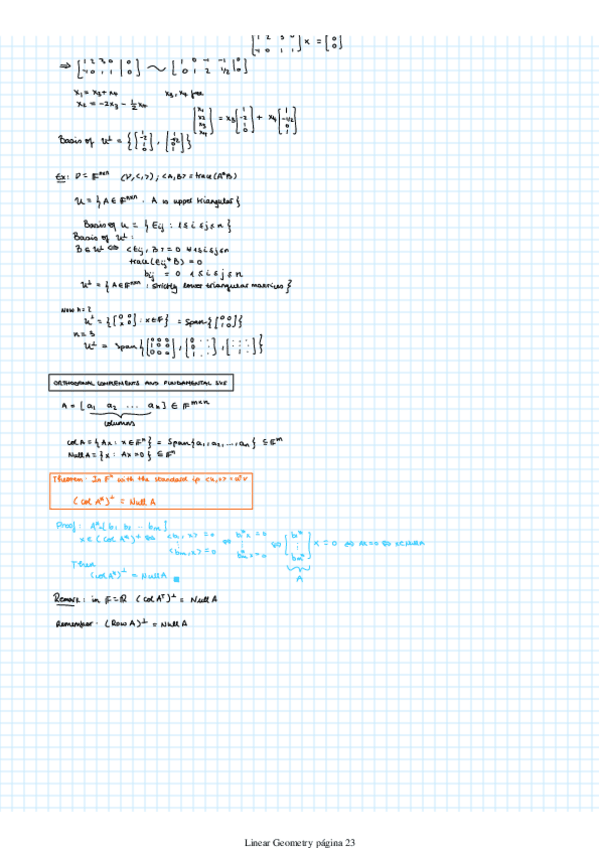 [1 2 3 0; -4 0 1 1] x = [0; 0]
⇒ [1 2 3 0 | 0; -4 0 1 1 | 0] ~ [1 0 -1 -1 | 0; 0 1 2 1/2 | 0]
x₁ = x₃ + x₄   x₃, x₄ free
x₂ = -2x₃ - ½x₄
[x₁; x₂; x₃; x₄] = x₃ [1; -2; 1; 0] + x₄ [1; -1/2; 0; 1]
Basis of U⊥ = { [1; -2; 1; 0], [1; -1/2; 0; 1] }
Ex: V = F^{n×n} (V, <,>) ; <A,B> = trace(A*B)
U = { A ∈ F^{n×n} . A is upper triangular }
Basis of U = { Eij : 1 ≤ i ≤ j ≤ n }
Basis of U⊥ :
B ∈ U⊥ ⇔ <Eij, B> = 0 ∀ 1≤i≤j≤n
trace(Eij* B) = 0
bij = 0 1≤i≤j≤n
U⊥ = { A ∈ F^{n×n} : strictly lower triangular matrices }
Now n = 2
U⊥ = { [0 0; x 0] : x ∈ F } = Span { [0 0; 1 0] }
n = 3
U⊥ = Span
ORTHOGONAL COMPLEMENTS AND FUNDAMENTAL
A = [ a₁ a₂ ... aₙ ] ∈ F^{m×n}
columns
Col A = { Ax : x ∈ Fⁿ } = Span { a₁, a₂, ..., aₙ } ⊆ F^m
Null A = { x : Ax = 0 } ⊆ Fⁿ
Theorem: In Fⁿ with the standard ip <u,v> = u*v
(Col A*)⊥ = Null A
Proof: A* = [ b₁ b₂ ... bm ]
x ∈ (Col A*)⊥ ⇔ <b₁, x> = 0 ⋮ <bm, x> = 0 ⇔ b₁* x = 0 ⋮ bm* x = 0 ⇔ [b₁*; ⋮; bm*] x = 0 ⇔ Ax = 0 ⇔ x ∈ Null A
A
Then
(Col A*)⊥ = Null A ■
Remark: in F = R (Col Aᵀ)⊥ = Null A
Remember: (Row A)⊥ = Null A
Linear Geometry página 23